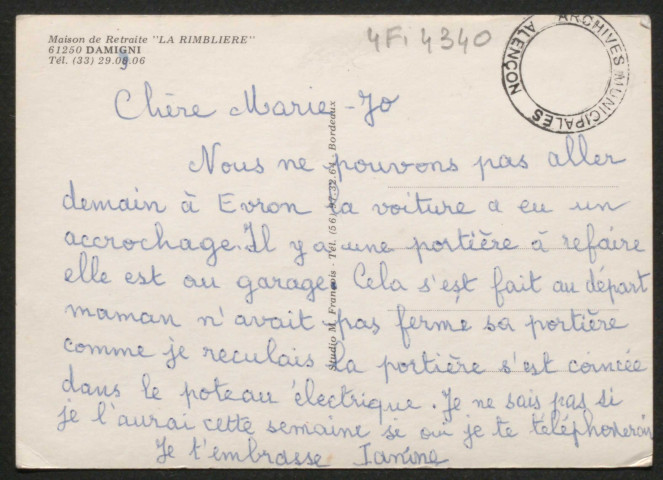 Maison de Retraite "LA RIMBLIERE"
61250 DAMIGNI
Tél. (33) 29.09.06
4Fi 4340
ARCHIVES MUNICIPALES ALENÇON
Chère Marie-Jo
Nous ne pouvons pas aller
demain à Evron la voiture a eu un
accrochage. Il y a une portière à refaire
elle est au garage. Cela s'est fait au départ
maman n'avait pas ferme sa portière
comme je reculais la portière s'est coincée
dans le poteau électrique. Je ne sais pas si
je l'aurai cette semaine se oui je te téléphonerai
Je t'embrasse Janine
Studio M. François - Tél. (56) 92.32.64 - Bordeaux